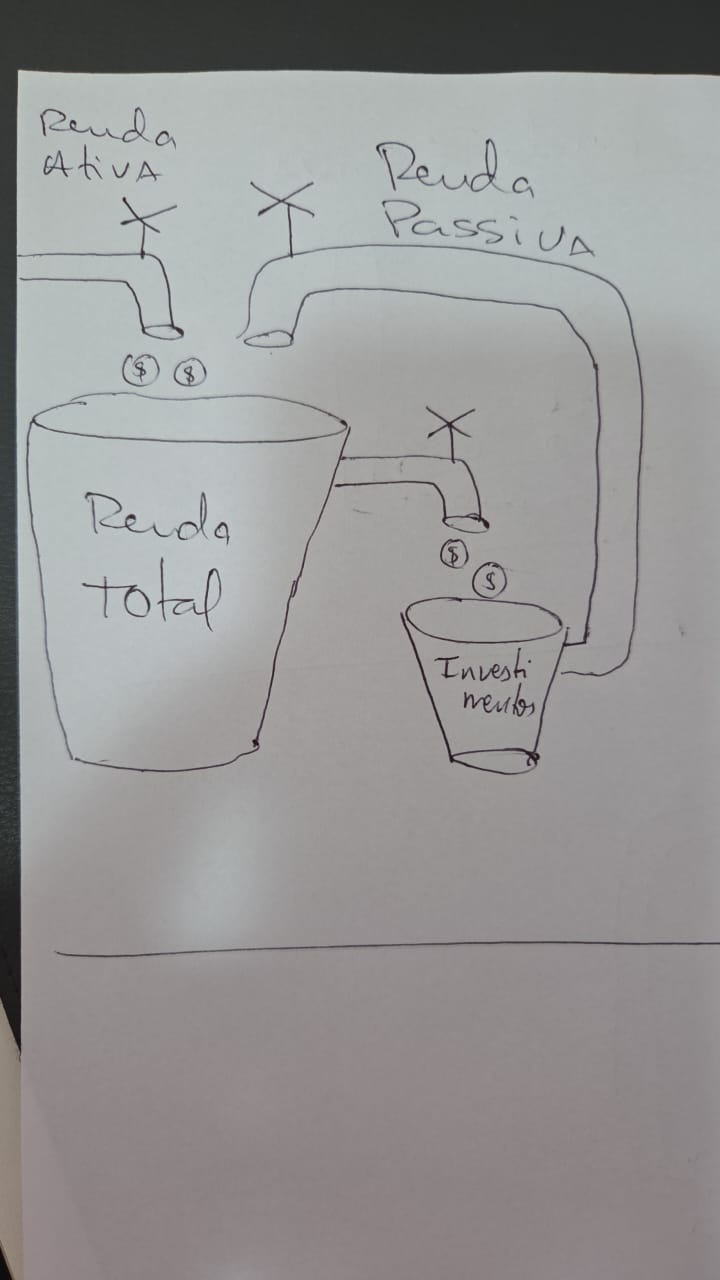 Renda
Ativa
Renda
Passiva
$ $
Renda
Total
$
$
Investi
mentos